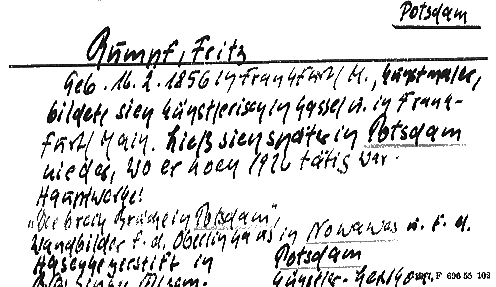 Potsdam
Rumpf, Fritz
Geb. 16. 2. 1856 in Frankfurt/M., Kunstmaler,
bildete sich künstlerisch in Cassel u. in Frank-
furt/Main. Ließ sich später in Potsdam
nieder, wo er noch 1926 tätig war.
Hauptwerke:
"Die breite Brücke in Potsdam",
Wandbilder f. d. Oberlinhaus in Nowawes u. f. d.
in Potsdam
F 696 55 109